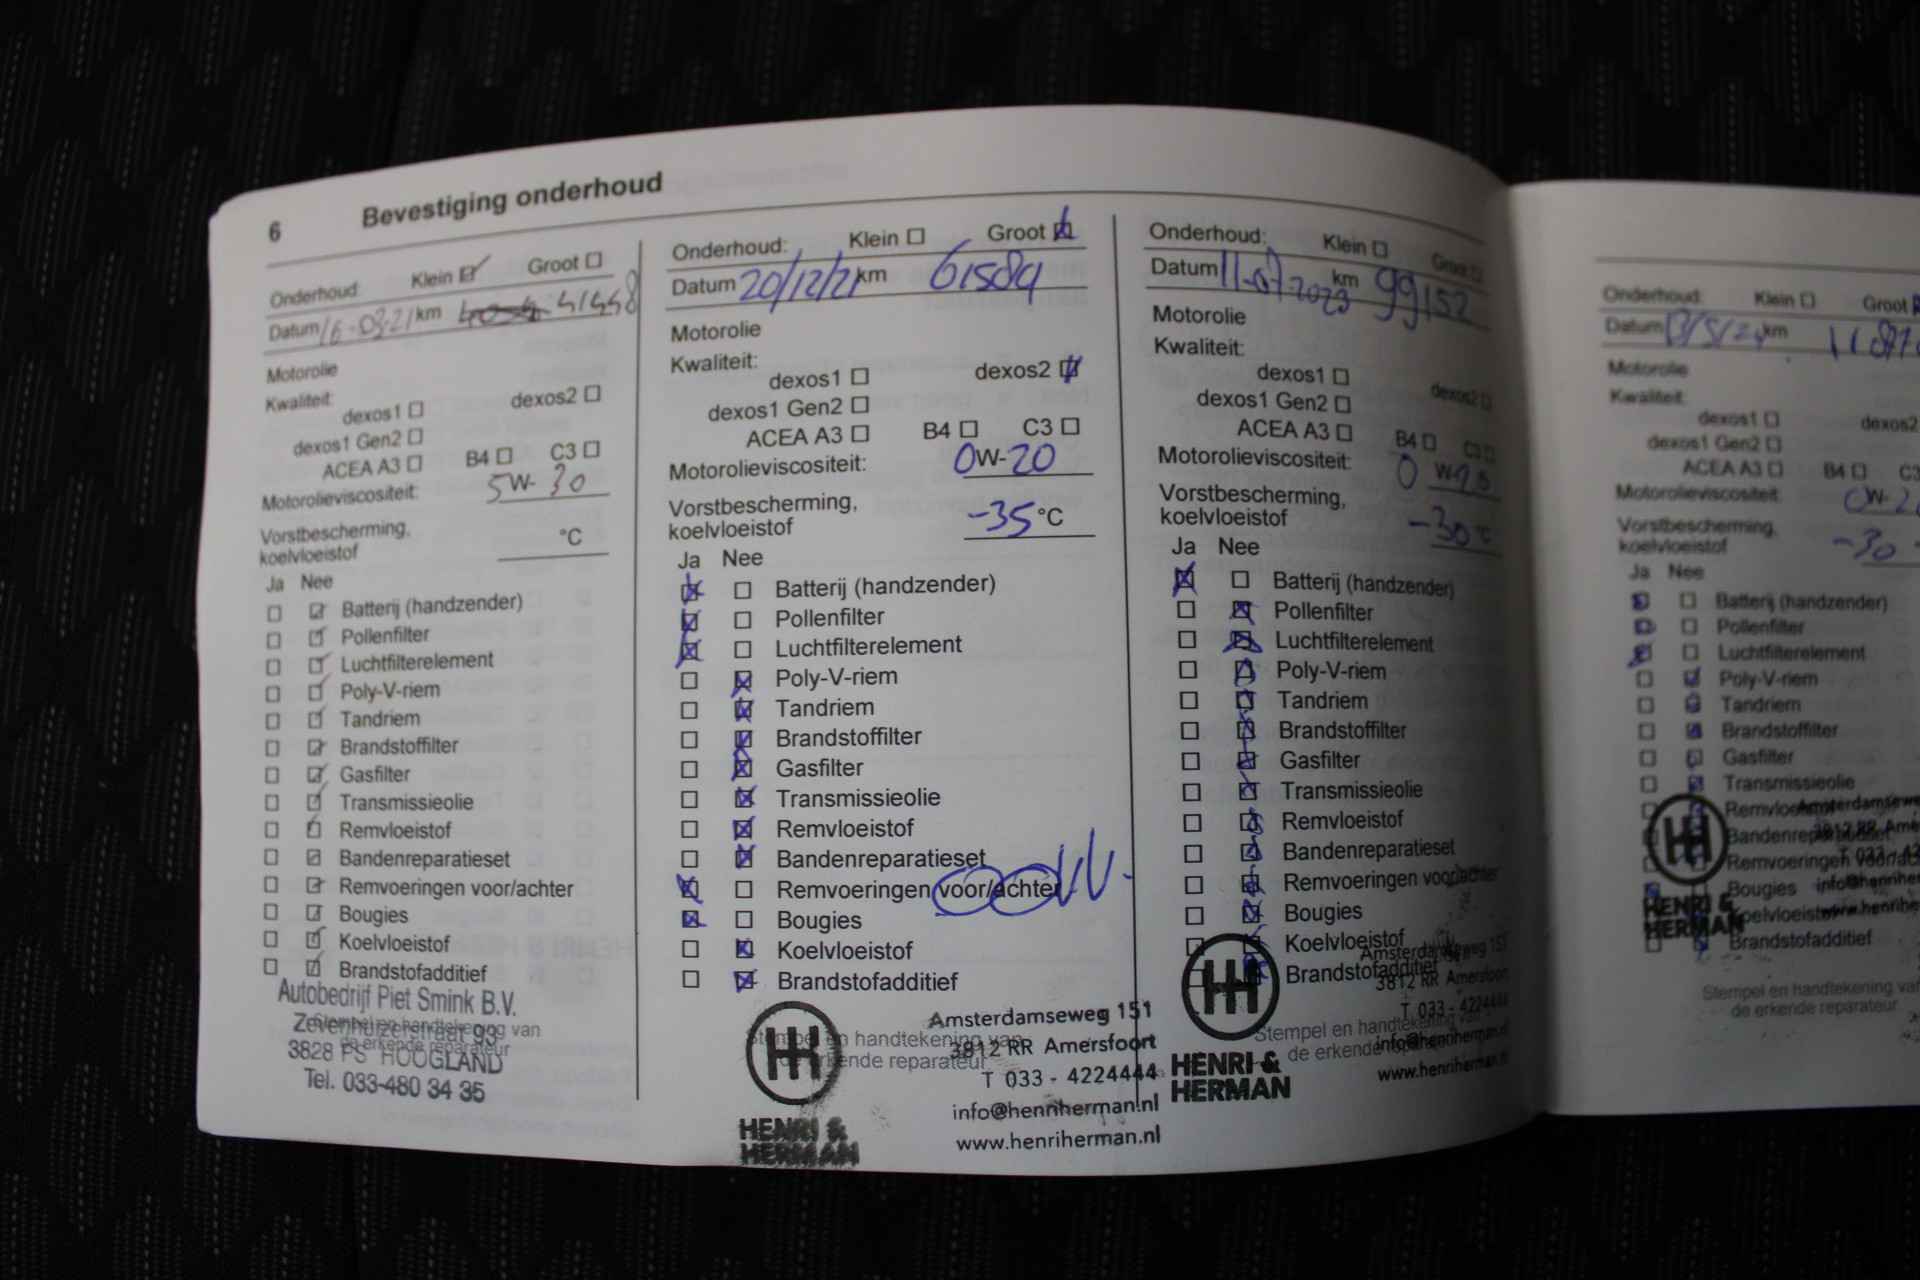 6 Bevestiging onderhoud
Onderhoud: Klein Groot
Datum 16-03-21 km 41448
Motorolie
Kwaliteit:
dexos1 dexos2
dexos1 Gen2
ACEA A3 B4 C3
Motorolieviscositeit: 5W-30
Vorstbescherming,
koelvloeistof °C
Ja Nee
Batterij (handzender)
Pollenfilter
Luchtfilterelement
Poly-V-riem
Tandriem
Brandstoffilter
Gasfilter
Transmissieolie
Remvloeistof
Bandenreparatieset
Remvoeringen voor/achter
Bougies
Koelvloeistof
Brandstofadditief
Autobedrijf Piet Smink B.V.
Zevenhuizerstraat 93
Stempel en handtekening van
de erkende reparateur
3828 PS HOOGLAND
Tel. 033-480 34 35
Onderhoud: Klein Groot
Datum 20/12/21 km 61589
Motorolie
Kwaliteit:
dexos1 dexos2
dexos1 Gen2
ACEA A3 B4 C3
Motorolieviscositeit: 0W-20
Vorstbescherming,
koelvloeistof -35 °C
Ja Nee
Batterij (handzender)
Pollenfilter
Luchtfilterelement
Poly-V-riem
Tandriem
Brandstoffilter
Gasfilter
Transmissieolie
Remvloeistof
Bandenreparatieset
Remvoeringen voor/achter
Bougies
Koelvloeistof
Brandstofadditief
Stempel en handtekening van
erkende reparateur
HENRI &
HERMAN
Amsterdamseweg 151
3812 RR Amersfoort
T 033 - 4224444
info@henriherman.nl
www.henriherman.nl
Onderhoud: Klein Groot
Datum 11-07-2023 km 99152
Motorolie
Kwaliteit:
dexos1 dexos2
dexos1 Gen2
ACEA A3 B4 C3
Motorolieviscositeit: 0 W
Vorstbescherming,
koelvloeistof -30 °C
Ja Nee
Batterij (handzender)
Pollenfilter
Luchtfilterelement
Poly-V-riem
Tandriem
Brandstoffilter
Gasfilter
Transmissieolie
Remvloeistof
Bandenreparatieset
Remvoeringen voor/achter
Bougies
Koelvloeistof
Brandstofadditief
Stempel en handtekening
de erkende
HENRI &
HERMAN
Amsterdamseweg 151
3812 RR Amersfoort
T 033 - 4224444
info@henriherman.nl
www.henriherman.nl
Onderhoud: Klein Groot
Datum 13/5/24 km
Motorolie
Kwaliteit:
dexos1 dexos2
dexos1 Gen2
ACEA A3 B4 C3
Motorolieviscositeit: 0W-2
Vorstbescherming,
koelvloeistof -30
Ja Nee
Batterij (handzender)
Pollenfilter
Luchtfilterelement
Poly-V-riem
Tandriem
Brandstoffilter
Gasfilter
Transmissieolie
Remvloeistof
Bandenreparatieset
Remvoeringen voor/ac
Bougies
Koelvloeistof
Brandstofadditief
HENRI &
HERMAN
Amsterdamsewe
3812 RR Ame
T 033 - 42
info@henriherm
www.henriherm
Stempel en handtekening van
de erkende reparateur